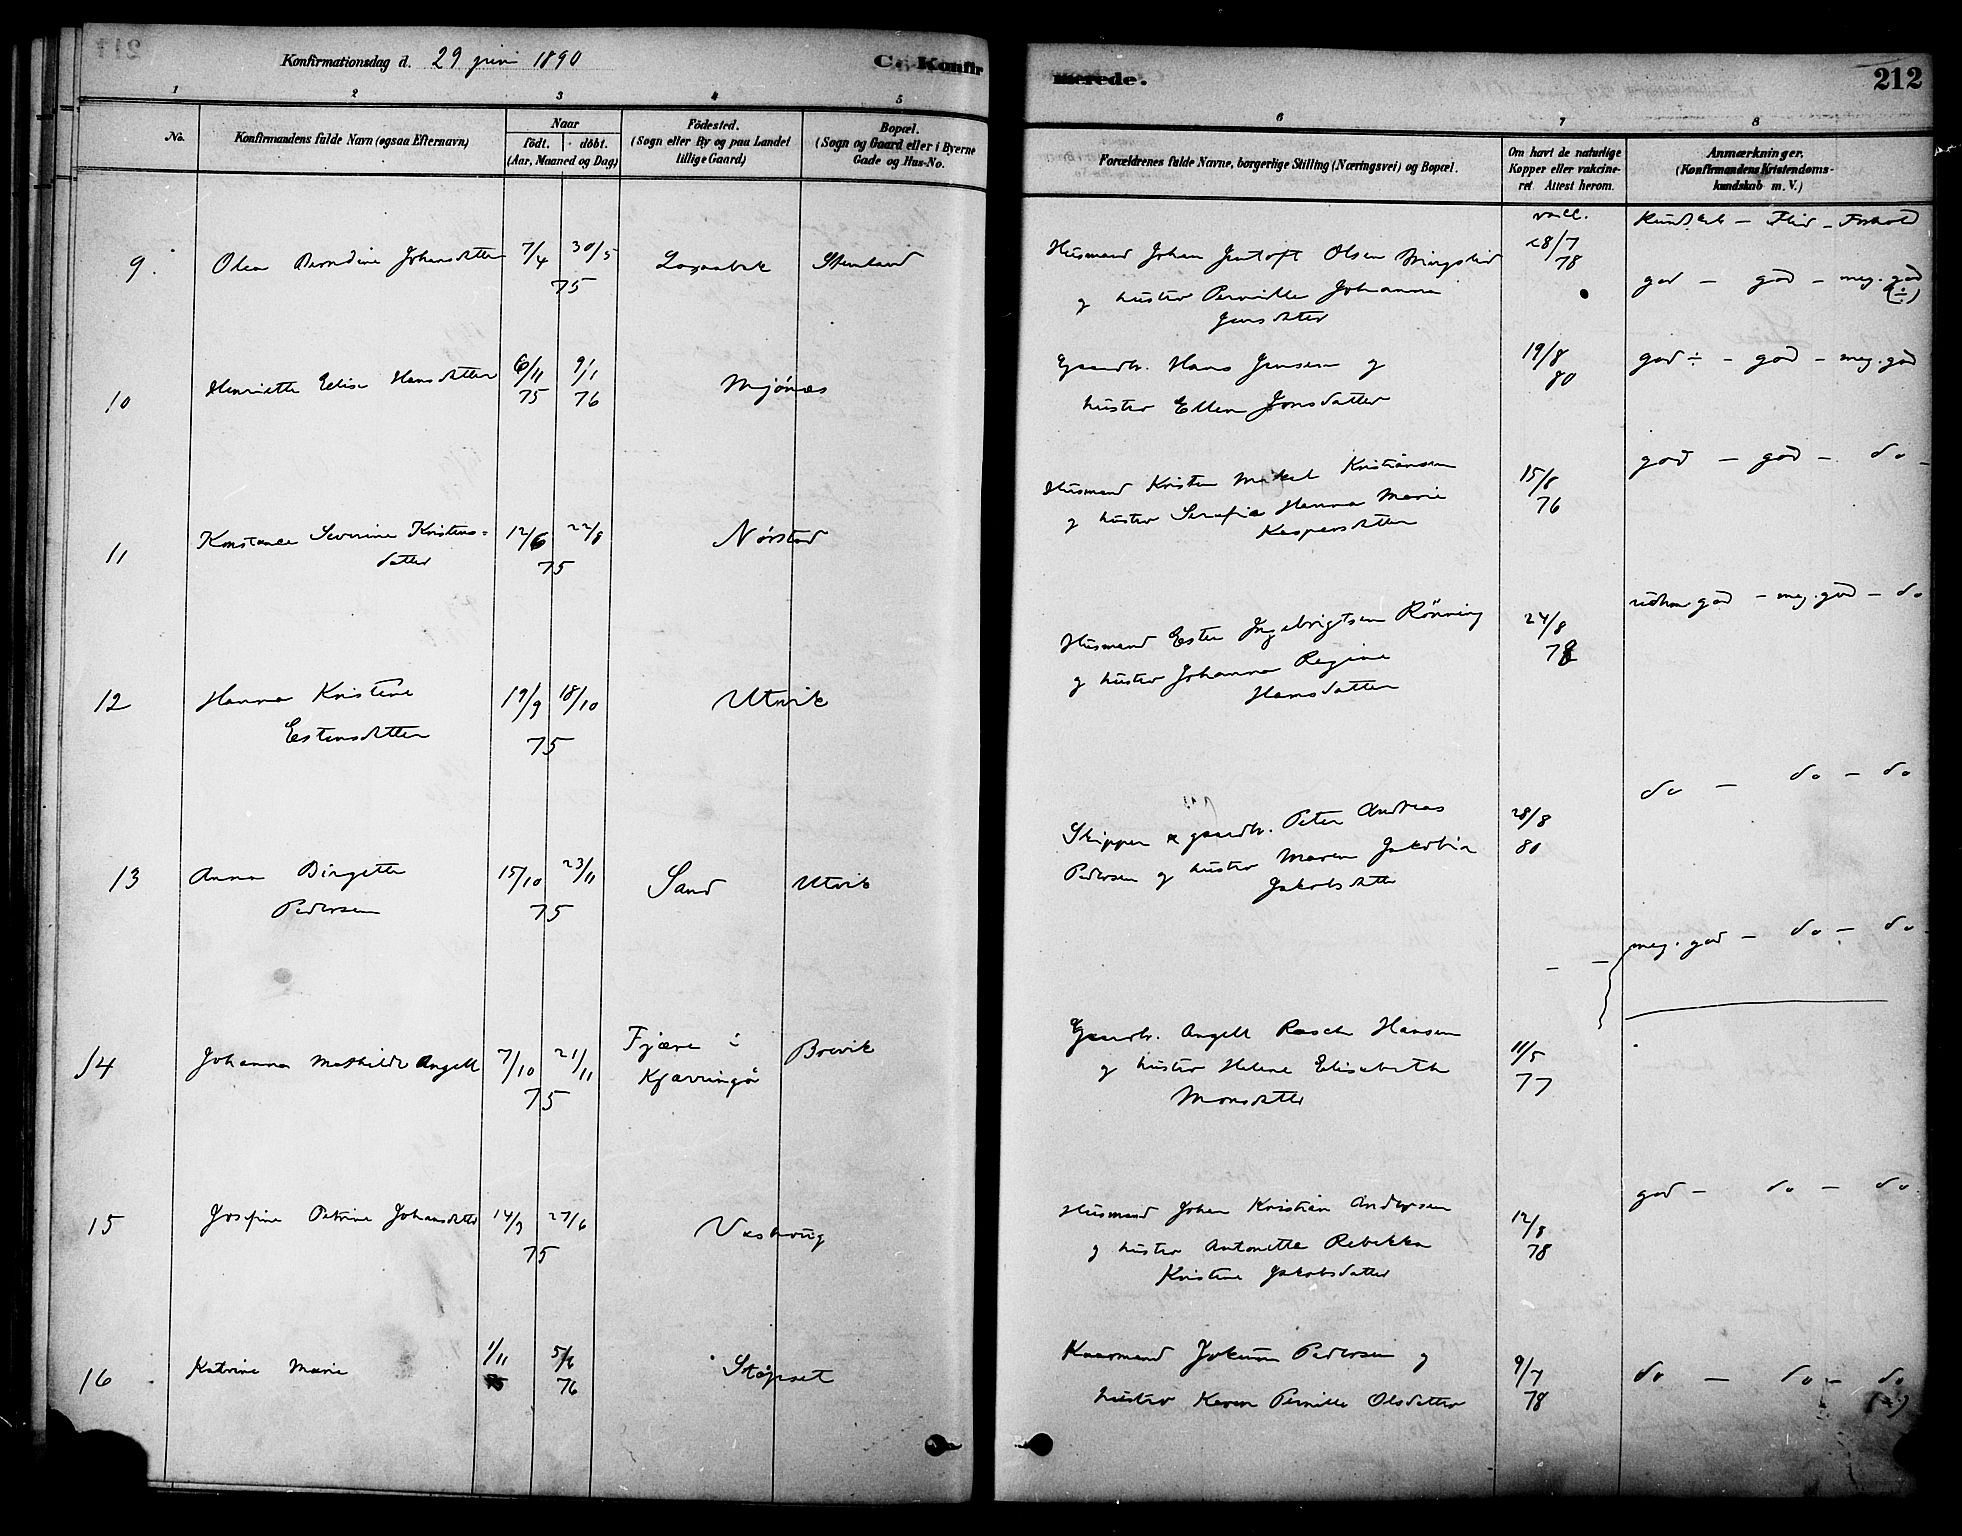 Konfirmationsdag d. 29 juni 1890
C. Konfirmerede.
212
1 2 3 4 5 6 7 8
No.
Konfirmandens fulde Navn (ogsaa Efternavn)
Naar
födt. döbt.
(Aar, Maaned og Dag)
Födested.
(Sogn eller By og paa Landet
tillige Gaard)
Bopæl.
(Sogn og Gaard eller i Byerne
Gade og Hus-No.
Forældrenes fulde Navne, borgerlige Stilling (Næringsvei) og Bopæl.
Om havt de naturlige
Kopper eller vakcine-
ret Attest herom.
Anmærkninger.
(Konfirmandens Kristendoms-
kundskab m. V.)
vacc. Kundskab – Flid – Forhold
9. Olea Berndine Johansdatter 7/4 30/5 Stenland
75
Husmand Johan Jentoft Olsen 28/7
og hustru Pernille Johanna 78 god – god – meg. god
Jensdatter (÷)
10 Henriette Elise Hansdatter 6/11 9/1 Mjønæs
75 76
Gaardbr. Hans Jensen og 19/8 god ÷ – god – meg. god
hustru Ellen Jonsdatter 80
11 Konstance Severine Kristens= 12/6 22/8 Nørstad
datter 75
Husmand Kristen Mikal Kristiansen 15/8 god – god – do –
og hustru Serafia Hanna Marie 76
Kaspersdatter
12 Hanna Kristine 19/9 18/10 Utvik
Estensdatter 75
Husmand Esten Ingebrigtsen Rönning 24/8 udm. god – meg. god – do
og hustru Johanna Regine 78
Hansdatter
13 Anna Birgette 15/10 23/11 Sand Utvik
Pedersen 75
Skipper & gaardbr. Peter Andreas 28/8 do – do – do
Pedersen og hustru Maren Jakobia 80
Jakobsdatter
14 Johanna Mathilde Angell 7/10 21/11 Fjære i Brevik
75 Kjærringø
– – meg. god – do – do
Gaardb. Angell Rasch Hansen 11/5
og hustru Helene Elisabeth 77
Monsdatter
15 Josefine Petrine Johansdatter 14/3 27/6
75
Husmand Johan Kristian Andersen 12/8 god – do – do
og hustru Antonette Rebekka 78
Kristine Jakobsdatter
16 Katrine Marie 1/11 5/6
75 76
Kaarmand Jokum Pedersen og 9/7 do – do – do
hustru Karen Pernille Olsdatter 78 (÷)